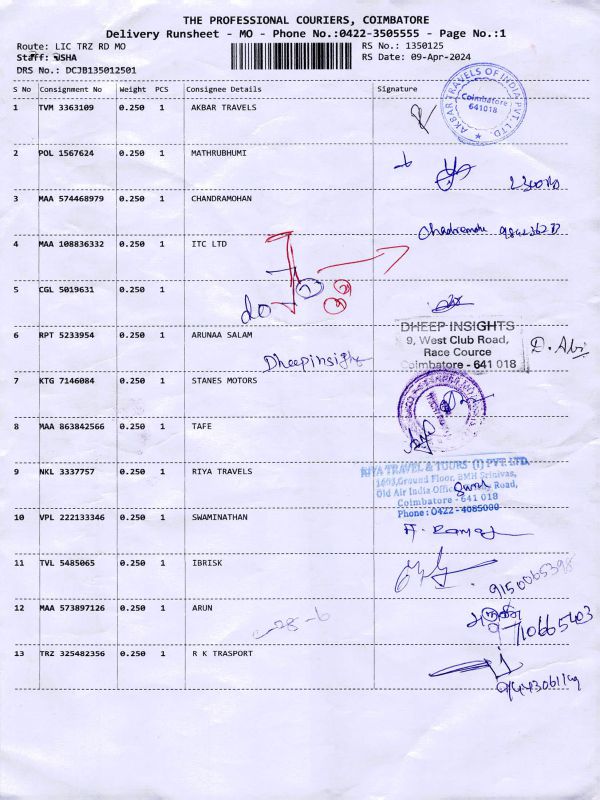 THE PROFESSIONAL COURIERS, COIMBATORE
Delivery Runsheet - MO - Phone No.:0422-3505555 - Page No.:1
Route: LIC TRZ RD MO RS No.: 1350125
Staff: USHA RS Date: 09-Apr-2024
DRS No.: DCJB135012501
S No Consignment No Weight PCS Consignee Details Signature
1 TVM 3363109 0.250 1 AKBAR TRAVELS
AKBAR TRAVELS OF INDIA PVT. LTD.
Coimbatore
641018
2 POL 1567624 0.250 1 MATHRUBHUMI
3 MAA 574468979 0.250 1 CHANDRAMOHAN
4 MAA 108836332 0.250 1 ITC LTD
5 CGL 5019631 0.250 1
do
6 RPT 5233954 0.250 1 ARUNAA SALAM
Dheepinsight
DHEEP INSIGHTS
9, West Club Road,
Race Cource
Coimbatore - 641 018
D. Abi
7 KTG 7146084 0.250 1 STANES MOTORS
8 MAA 863842566 0.250 1 TAFE
9 NKL 3337757 0.250 1 RIYA TRAVELS
RIYA TRAVEL & TOURS (I) PVT LTD.
1603,Ground Floor, BMH Srinivas,
Old Air India Office Road,
Coimbatore - 641 018
Phone: 0422 - 4085000
10 VPL 222133346 0.250 1 SWAMINATHAN
11 TVL 5485065 0.250 1 IBRISK
9150065398
12 MAA 573897126 0.250 1 ARUN
13 TRZ 325482356 0.250 1 R K TRASPORT